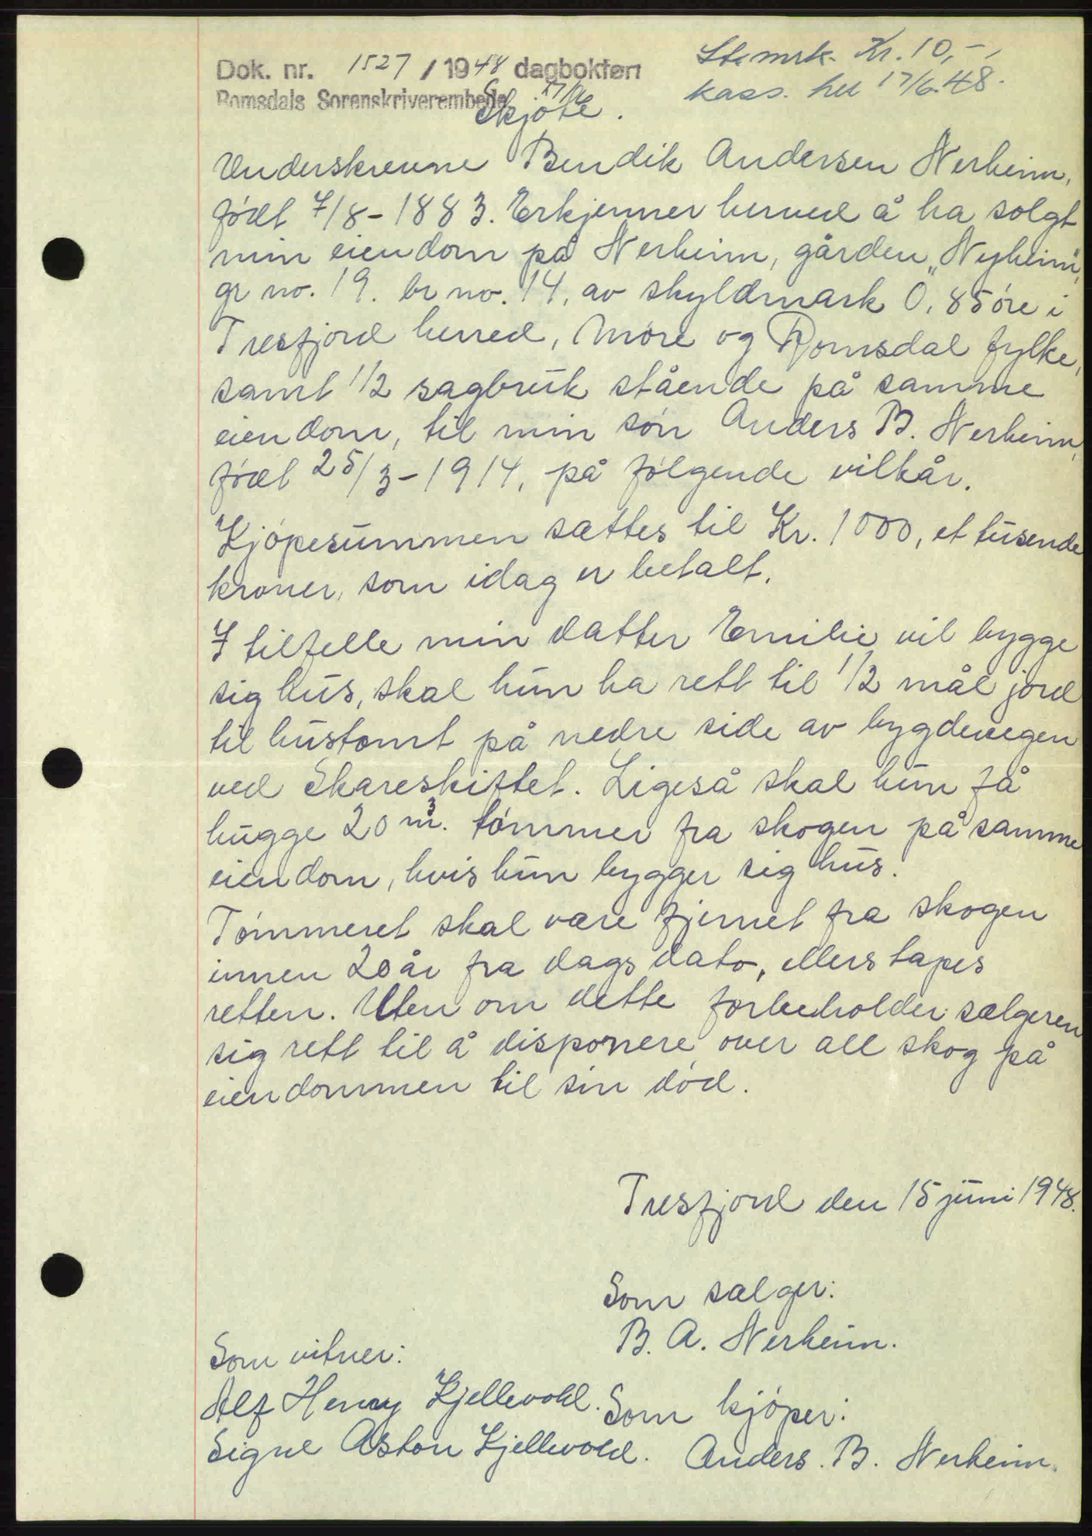 Dok. nr. 1527 / 1948 dagboken
Romsdals Sorenskriverembede
Stemrk. Kr. 10,-,
kass. hu 17/6.48.
Skjøte.
Underskrevne Bendik Andersen Nerheim,
født 7/8-1883. Erkjenner herved å ha solgt
min eiendom på Nerheim, gården „Nyheim",
gr no. 19. br no. 14, av skyldmark 0,85 øre i
Tresfjord herred, Møre og Romsdal fylke,
samt 1/2 sagbruk stående på samme
eiendom, til min søn Anders B. Nerheim,
født 25/3-1914, på følgende vilkår.
Kjøpesummen sættes til Kr. 1000, et tusende
kroner, som idag er betalt.
I tilfelle min datter Emilie vil bygge
sig hus, skal hun ha rett til 1/2 mål jord
til hustomt på nedre side av bygdevegen
ved Skareskiftet. Ligeså skal hun få
hugge 20 m³. tømmer fra skogen på samme
eiendom, hvis hun bygger sig hus.
Tømmeret skal være fjernet fra skogen
innen 20 år fra dags dato, ellers tapes
retten. Uten om dette forbeholder sælgeren
sig rett til å disponere over all skog på
eiendommen til sin død.
Tresfjord den 15 juni 1948.
Som sælger:
B. A. Nerheim.
Som vitner:
Alf Henry Kjellevold.
Signe Aston Kjellevold.
Som kjøper:
Anders. B. Nerheim.